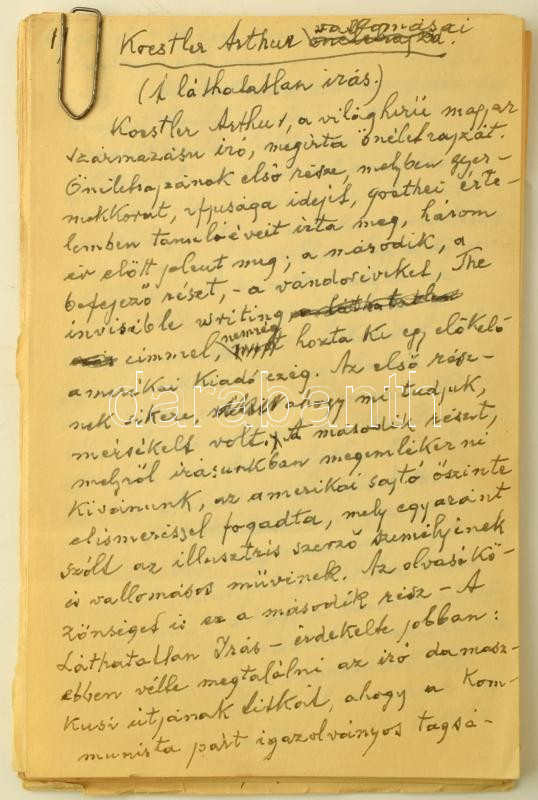 1)
Koestler Arthur vallomásai
önéletrajza.
(A láthatatlan irás.)
Koestler Arthur, a világhirü magyar
származásu iró, megirta önéletrajzát.
Önéletrajzának első része, melyben gyer-
mekkorát, ifjusága idejét, goethei érte-
lemben tanulóéveit irta meg, három
év előtt jelent meg; a második, a
befejező részt, - a vándoréveket, The
invisible writing
cimmel, nemrég hozta ki egy előkelő
amerikai kiadó czég. Az első rész-
nek sikere, ahogy mi tudjuk,
mérsékelt volt. A második részt,
melyről irásunkban megemlékezni
kivánunk, az amerikai sajtó őszinte
elismeréssel fogadta, mely egyaránt
szólt az illusztris szerző személyének
is vallomásos művinek. Az olvasókö-
zönséget is ez a második rész - A
Láthatatlan Irás - érdekelte jobban:
ebben vélte megtalálni az iró damasz-
kusi útjának titkát, ahogy a Kom-
munista párt igazolványos tagsá-
darabanth